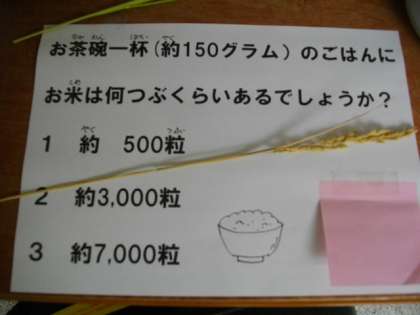 お茶碗一杯(約150グラム)のごはんに
お米は何つぶくらいあるでしょうか?
1 約 500粒
2 約3,000粒
3 約7,000粒